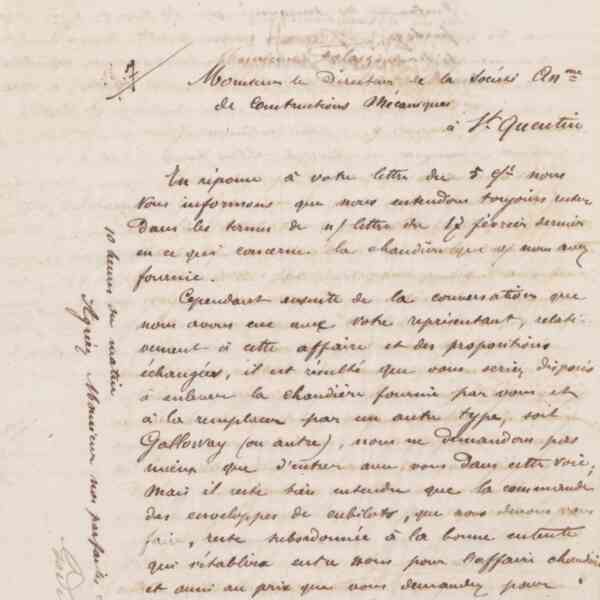 Monsieur le Directeur de la Société Anme
de Constructions Mécaniques
à St Quentin
En réponse à votre lettre du 5 ct nous
vous informons que nous entendons toujours rester
dans les termes de n/ lettre du 17 février dernier
en ce qui concerne la chaudière que vous nous avez
fournie.
Cependant ensuite de la conversation que
nous avons eue avec votre représentant, relati-
vement à cette affaire et des propositions
échangées, il est résulté que vous seriez disposés
à enlever la chaudière fournie par vous et
à la remplacer par un autre type, soit
Galloway (ou autre), nous ne demandons pas
mieux que d'entrer avec vous dans cette voie,
mais il reste bien entendu que la commande
des enveloppes de cubilots, que nous devons vous
faire, reste subordonnée à la bonne entente
qui s'établira entre nous pour l'affaire chaudière
et aussi au prix que vous demandez pour
10 heures du matin
Agréez Monsieur nos parfaites